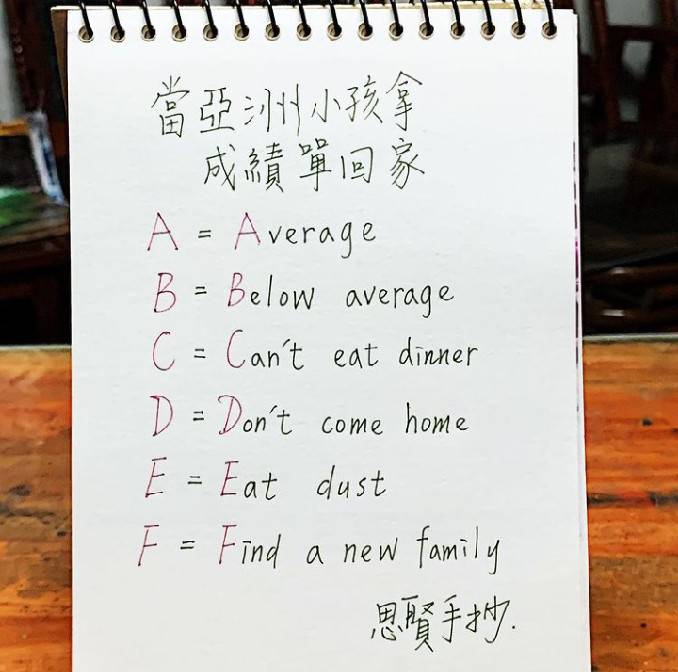 當亞洲小孩拿
成績單回家
A = Average
B = Below average
C = Can't eat dinner
D = Don't come home
E = Eat dust
F = Find a new family
思賢手抄.